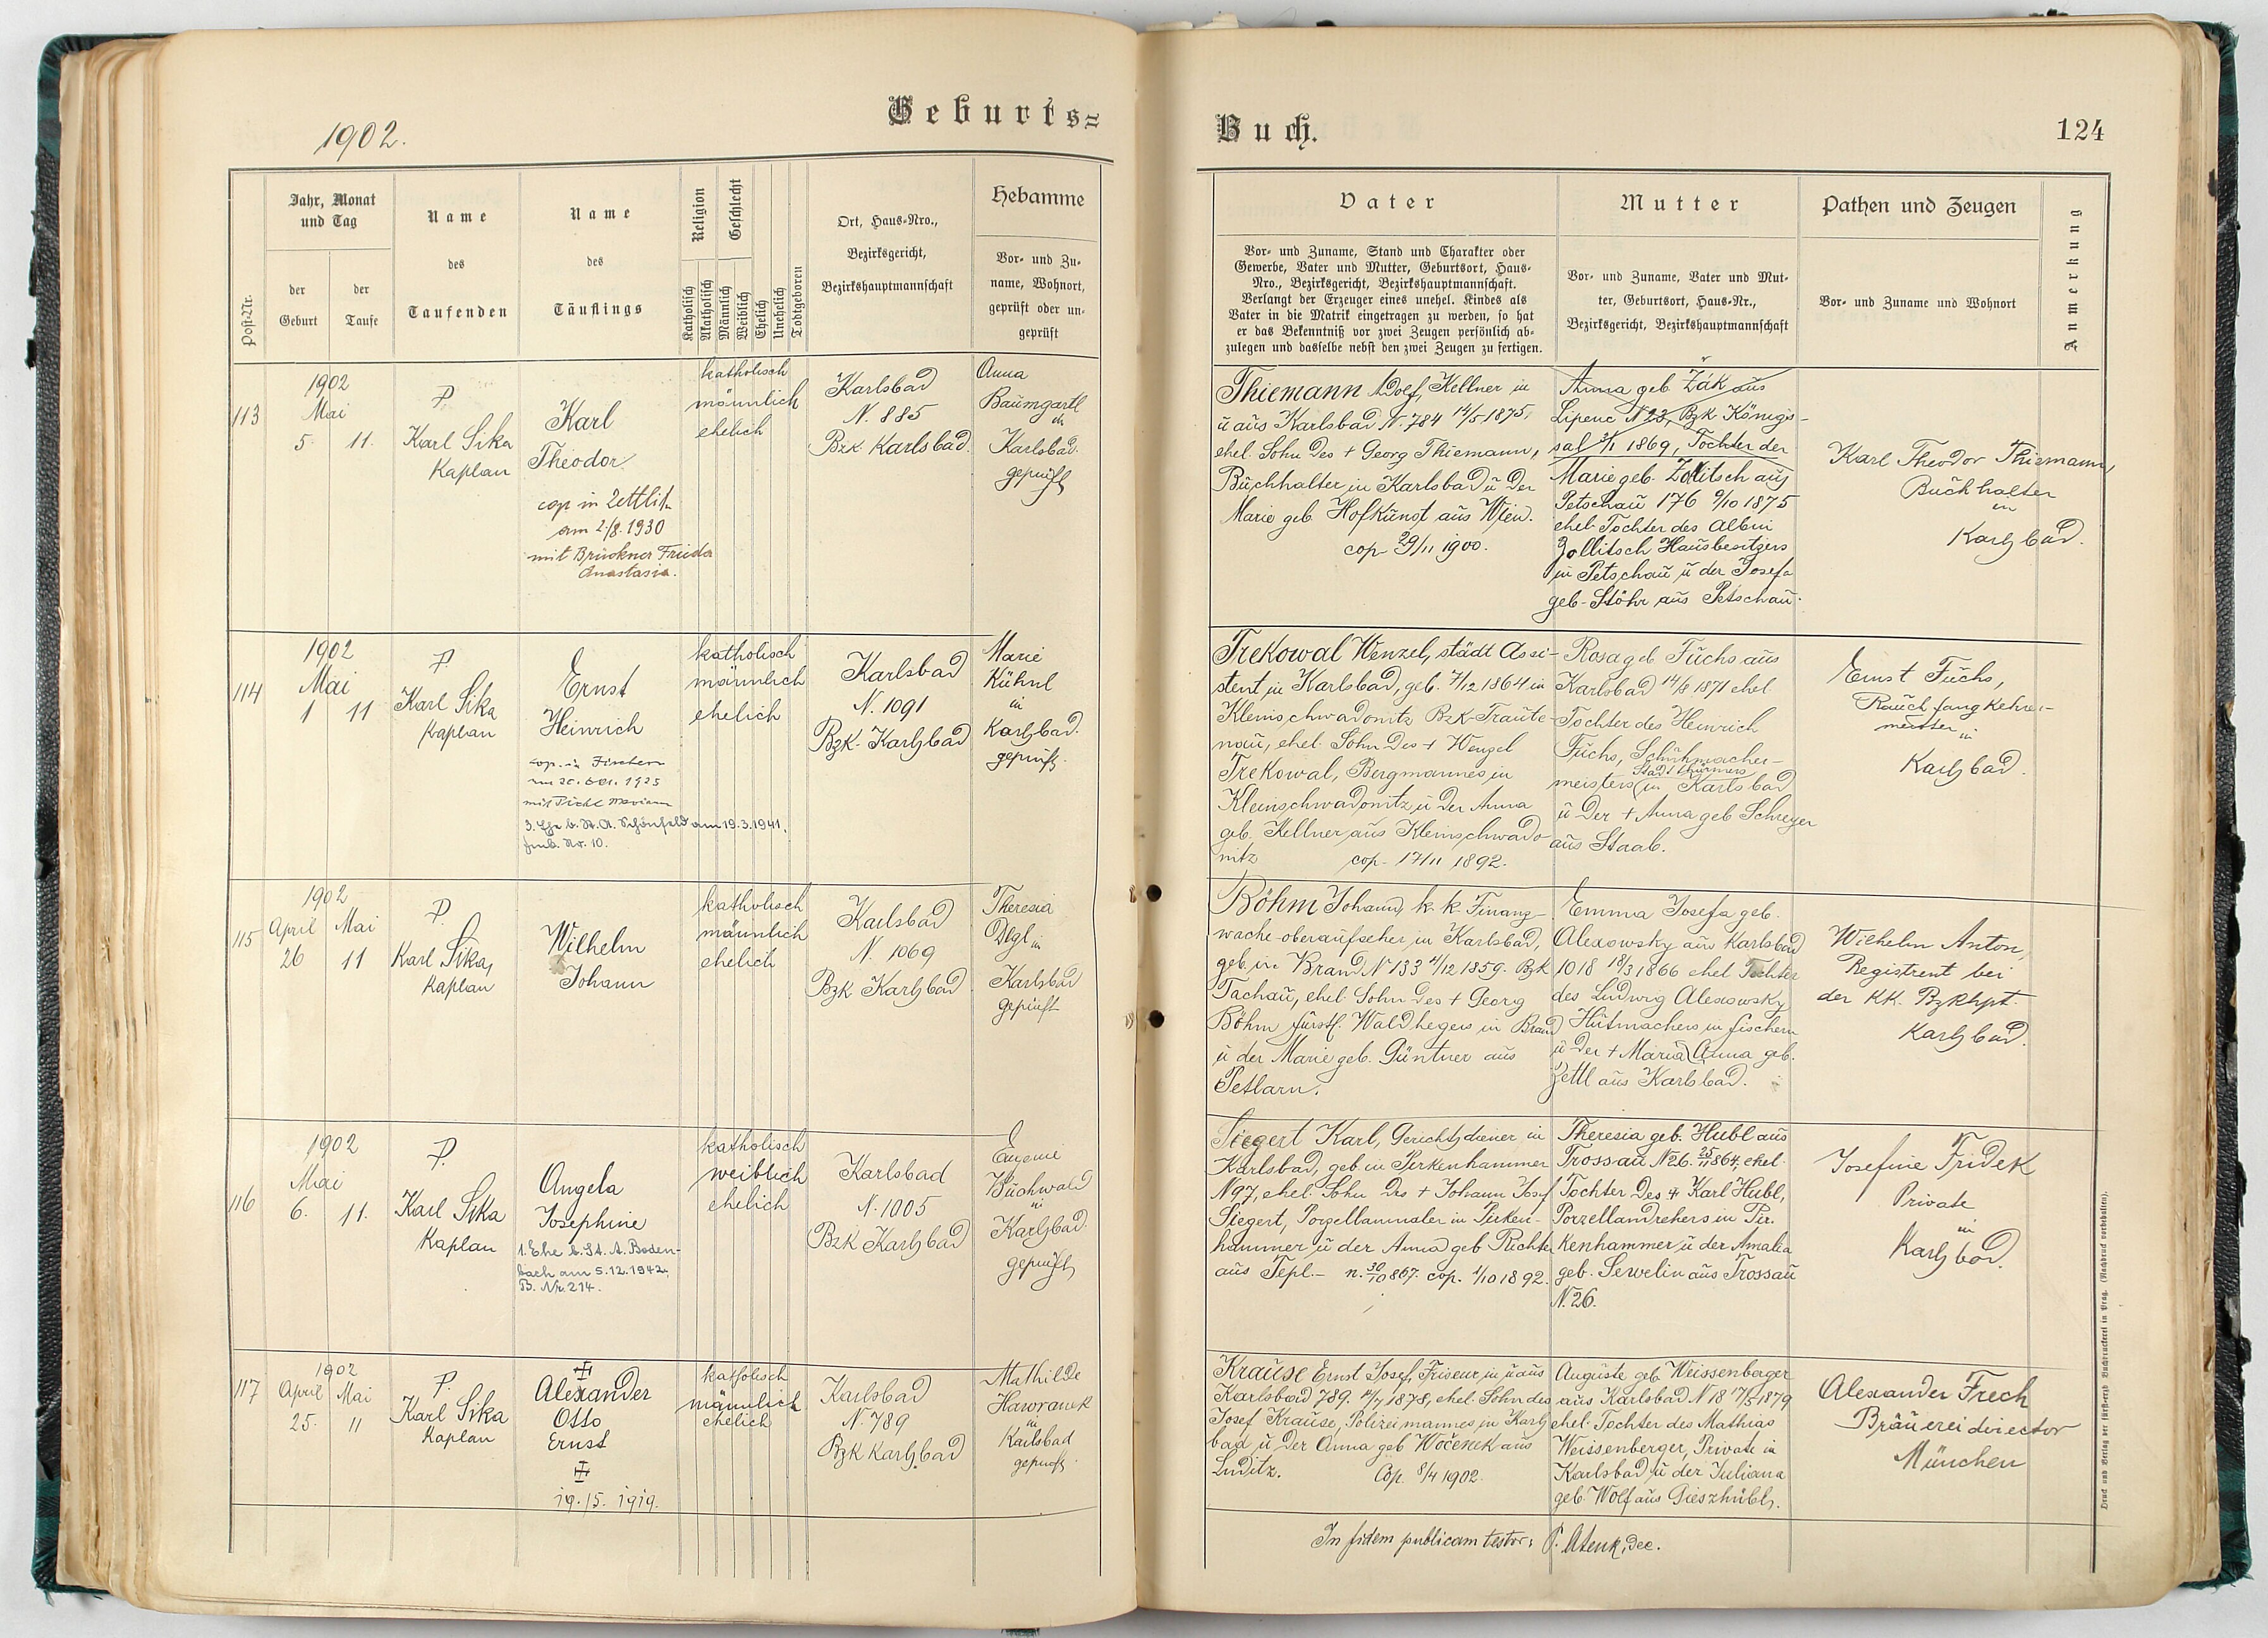 1902.
Geburts=
Post-Nr.
Jahr, Monat
und Tag
der
Geburt
der
Taufe
Name
des
Taufenden
Name
des
Täuflings
Religion
Geschlecht
Katholisch
Akatholisch
Männlich
Weiblich
Ehelich
Unehelich
Todtgeboren
Ort, Haus-Nro.,
Bezirksgericht,
Bezirkshauptmannschaft
Hebamme
Vor- und Zu-
name, Wohnort,
geprüft oder un-
geprüft
113
1902
Mai
5. 11.
P.
Karl Sika
Kaplan
Karl
Theodor
cop in Zettlitz
am 2/8. 1930
mit Brückner Frieda
Anastasia.
katholisch
männlich
ehelich
Karlsbad
N. 885
Bzk. Karlsbad.
Anna
Baumgartl
in
Karlsbad.
geprüft
114
1902
Mai
1 11
P.
Karl Sika
Kaplan
Ernst
Heinrich
cop. in Fischern
1925
3. Ehe b. St. A. Schönfeld am 19.3.1941.
Fmb. Nr. 10.
katholisch
männlich
ehelich
Karlsbad
N. 1091
Bzk. Karlsbad
Marie
Kühnl
in
Karlsbad.
geprüft.
115
1902
April Mai
26 11
P.
Karl Sika,
Kaplan
Wilhelm
Johann
katholisch
männlich
ehelich
Karlsbad
N. 1069
Bzk Karlsbad
Theresia
in
Karlsbad
geprüft
116
1902
Mai
6. 11.
P.
Karl Sika
Kaplan
Angela
Josephine
1. Ehe b. St. A. Boden-
bach am 5.12.1942,
B. Nr. 214.
katholisch
weiblich
ehelich
Karlsbad
N. 1005
Bzk Karlsbad
Eugenie
Buchwald
in
Karlsbad.
geprüft
117
1902
April Mai
25. 11
P.
Karl Sika
Kaplan
Alexander
Otto
Ernst
19./5. 1919.
katholisch
männlich
ehelich
Karlsbad
N. 789
Bzk Karlsbad
Mathilde
Hawranek
in
Karlsbad
geprüft.
Buch.
124
Vater
Vor- und Zuname, Stand und Charakter oder
Gewerbe, Vater und Mutter, Geburtsort, Haus-
Nro., Bezirksgericht, Bezirkshauptmannschaft.
Verlangt der Erzeuger eines unehel. Kindes als
Vater in die Matrik eingetragen zu werden, so hat
er das Bekenntniß vor zwei Zeugen persönlich ab-
zulegen und dasselbe nebst den zwei Zeugen zu fertigen.
Mutter
Vor- und Zuname, Vater und Mut-
ter, Geburtsort, Haus-Nr.,
Bezirksgericht, Bezirkshauptmannschaft
Pathen und Zeugen
Vor- und Zuname und Wohnort
Anmerkung
Thiemann Adolf, Kellner in
u aus Karlsbad N. 784 14/5 1875,
ehel. Sohn des + Georg Thiemann,
Buchhalter in Karlsbad u der
Marie geb. Hofkunst aus Wien.
cop 29/11 1900.
Anna geb. Žák aus
Lipenc N 23, Bzk Königs-
sal 1869, Tochter der
Marie geb. Zollitsch aus
Petschau 176 9/10 1875
ehel. Tochter des Albin
Zollitsch Hausbesitzers
in Petschau u der Josefa
geb. Stöhr aus Petschau.
Karl Theodor Thiemann,
Buchhalter
in
Karlsbad.
Trekowal Wenzel, städt Assi-
stent in Karlsbad, geb. 7/12 1864 in
Kleinschwadonitz Bzk Traute-
nau, ehel. Sohn des + Wenzel
Trekowal, Bergmannes in
Kleinschwadonitz u der Anna
geb. Kellner aus Kleinschwado-
nitz cop. 17/11 1892.
Rosa geb Fuchs aus
Karlsbad 14/8 1871 ehel.
Tochter des Heinrich
Fuchs, Schuhmacher-
Stadtthürmers
meisters in Karlsbad
u der + Anna geb Schreyer
aus Staab.
Ernst Fuchs,
Rauchfangkehrer-
meister in
Karlsbad.
Böhm Johann, k. k. Finanz-
wache-oberaufseher in Karlsbad,
geb. in Brand N 133 4/12 1859. Bzk
Tachau, ehel. Sohn des + Georg
Böhm fürstl. Waldhegers in Brand
u der Marie geb. Güntner aus
Petlarn.
Emma Josefa geb.
Alexowsky aus Karlsbad
1018 18/3 1866 ehel Tochter
des Ludwig Alexowsky
Hutmachers in Fischern
u der + Maria Anna geb.
Zettl aus Karlsbad.
Wilhelm Anton,
Registrent bei
der KK. Bzkhpt.
Karlsbad.
Siegert Karl, Gerichtsdiener in
Karlsbad, geb. in Pirkenhammer
N 97, ehel. Sohn des + Johann Josef
Siegert, Porzellanmaler in Pirken-
hammer u der Anna geb Richter
aus Tepl. n. 30/10 867. cop. 1/10 1892.
Theresia geb. Hubl aus
Trossau N 26. 25/11 864, ehel.
Tochter des + Karl Hubl,
Porzellandrehers in Pir-
kenhammer u der Amalia
geb. Sewelin aus Trossau
N. 26.
Josefine Fridek
Private
in
Karlsbad.
Krause Ernst Josef, Friseur, in u aus
Karlsbad 789. 12/7 1878, ehel. Sohn des
Josef Krause, Polizeimannes in Karls
bad u der Anna geb Wočenek aus
Luditz. Cop. 8/4 1902.
Auguste geb Weissenberger
aus Karlsbad N 18 17/5 1879
ehel. Tochter des Mathias
Weissenberger, Private in
Karlsbad u der Juliana
geb. Wolf aus Gieszhübl.
Alexander Frech
Bräuereidirector
München
In fidem publicam testor: P. dec.
Druck und Verlag der fürst-erzb Buchdruckerei in Prag. (Nachdruck vorbehalten).